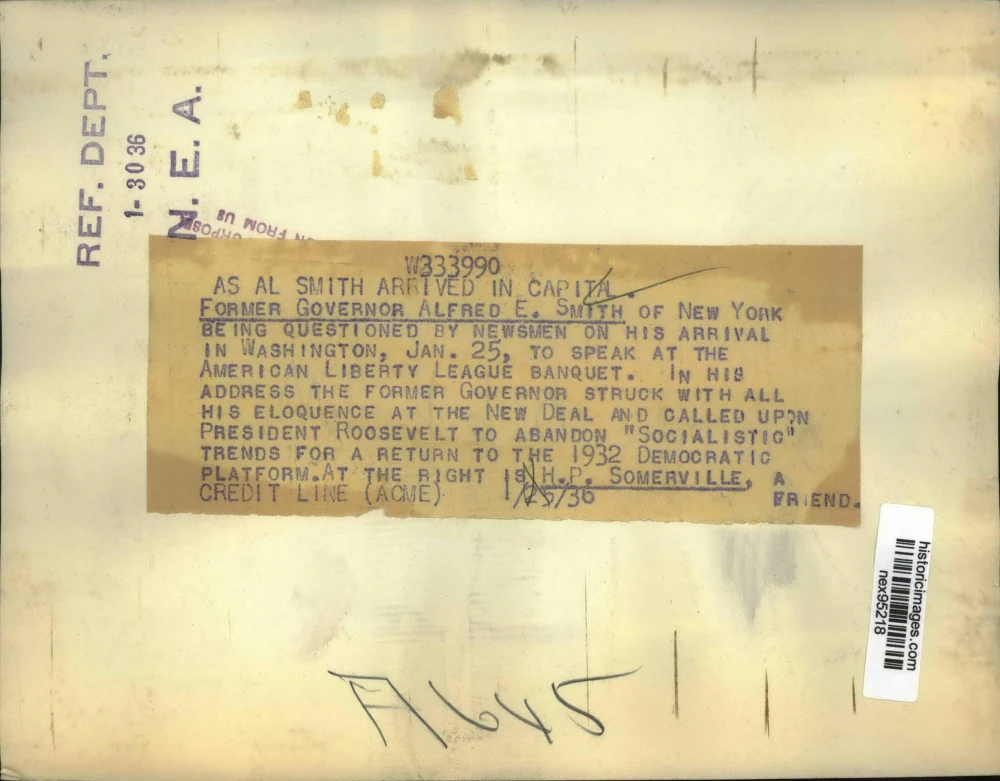 REF. DEPT.
1-30 36
N. E. A.
FROM US
W333990
AS AL SMITH ARRIVED IN CAPITAL.
FORMER GOVERNOR ALFRED E. SMITH OF NEW YORK
BEING QUESTIONED BY NEWSMEN ON HIS ARRIVAL
IN WASHINGTON, JAN. 25, TO SPEAK AT THE
AMERICAN LIBERTY LEAGUE BANQUET. IN HIS
ADDRESS THE FORMER GOVERNOR STRUCK WITH ALL
HIS ELOQUENCE AT THE NEW DEAL AND CALLED UPON
PRESIDENT ROOSEVELT TO ABANDON "SOCIALISTIC"
TRENDS FOR A RETURN TO THE 1932 DEMOCRATIC
PLATFORM. AT THE RIGHT IS H.P. SOMERVILLE, A
CREDIT LINE (ACME) 1/25/36 FRIEND.
historicimages.com
nex95218